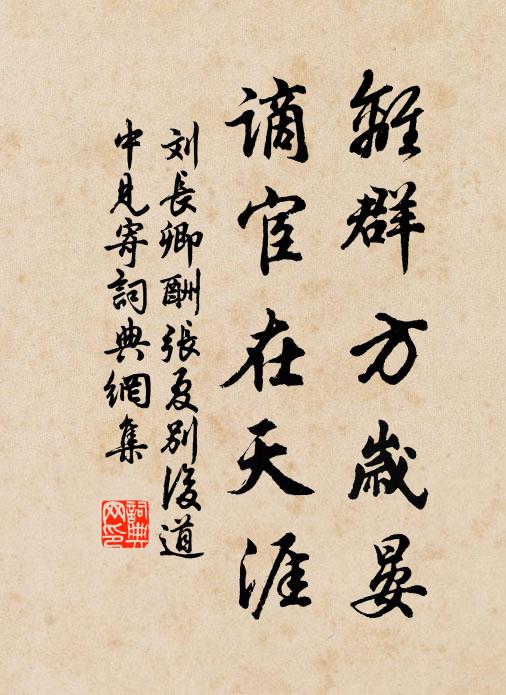 離群方歲晏
謫宦在天涯
刘長卿酬張夏别後道
中見寄詞典網集
詞典
网印